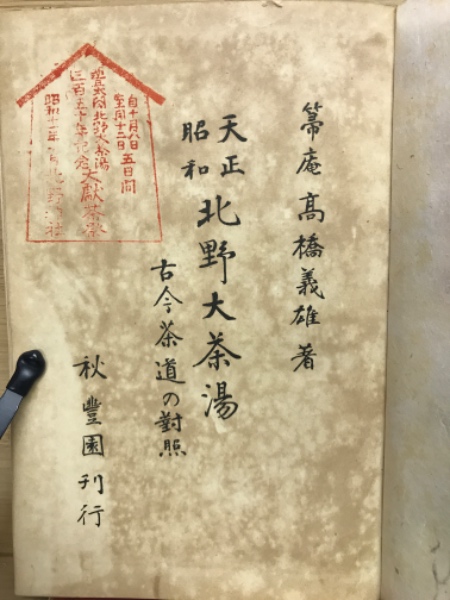 箒庵 高橋義雄 著
天正
昭和
北野大茶湯
古今茶道の對照
秋豐園刊行
自十月八日
至同十二日
五日間
豊太閤北野大茶湯
三百五十年記念大獻茶祭
昭和十一年
北野神社